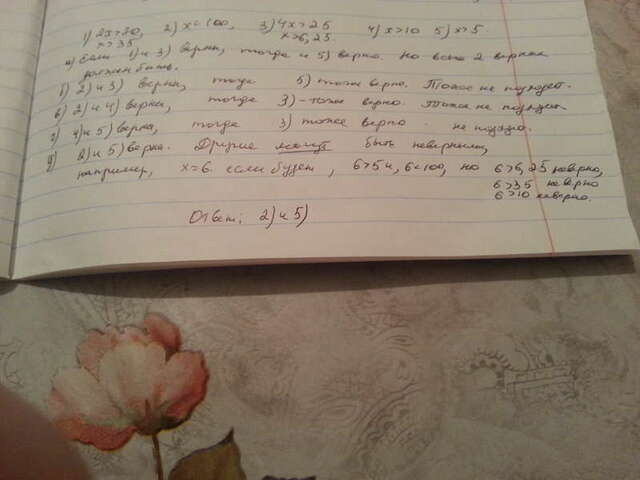 1) 2x>70, 2) x<100, 3) 4x>25 4) x>10 5) x>5
x>35 x>6,25
а) Если 1) и 3) верны, тогда и 5) верно. Но всего 2 верных
должны быть.
б) 2) и 3) верны, тогда 5) тоже верно. Тоже не подходит.
в) 2) и 4) верны, тогда 3) - тоже верно. Тоже не подходит
г) 4) и 5) верны, тогда 3) тоже верно - не подходит.
д) 2) и 5) верно. Другие могут быть неверными,
например, x=6 если будет, 6>5 и, 6<100, но 6>6,25 неверно,
6>35 неверно
6>10 неверно.
Ответ: 2) и 5)